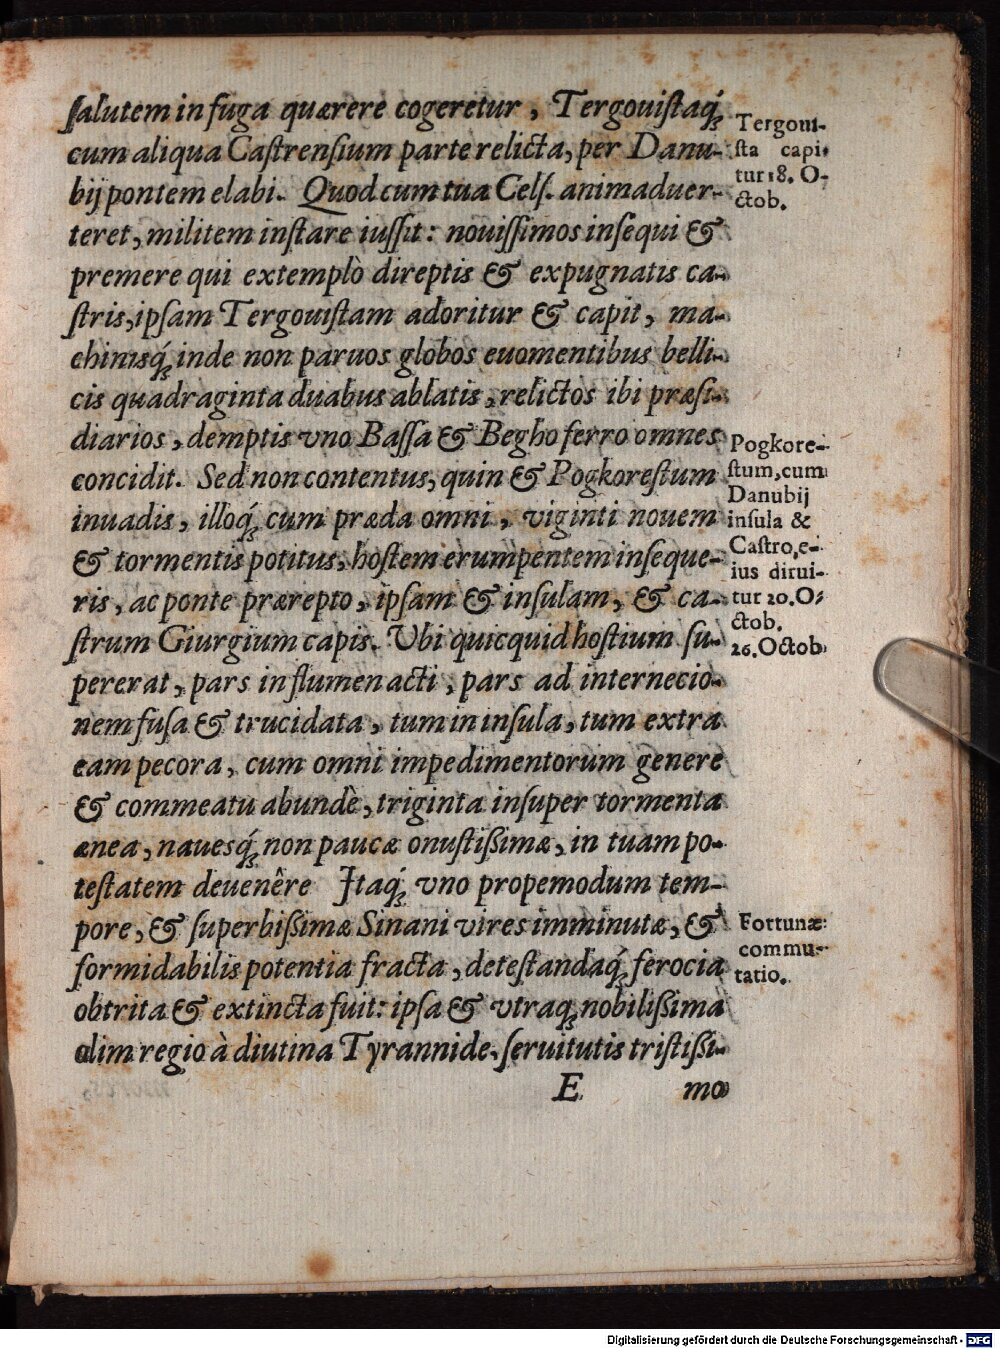 ſalutem in fuga quærere cogeretur, Tergouiſtaq́;
cum aliqua Caſtrenſium parte relicta, per Danu-
bij pontem elabi. Quod cum tua Celſ. animaduer-
teret, militem inſtare iuſſit: nouiſſimos inſequi &
premere qui extemplò direptis & expugnatis ca-
ſtris, ipſam Tergouiſtam adoritur & capit, ma-
chinisq́; inde non paruos globos euomentibus belli-
cis quadraginta duabus ablatis, relictos ibi præſi-
diarios, demptis vno Baſſa & Begho ferro omnes
concidit. Sed non contentus, quin & Pogkoreſtum
inuadis, illoq́; cum præda omni, viginti nouem
& tormentis potitus, hoſtem erumpentem inſeque-
ris, ac ponte prærepto, ipſam & inſulam, & ca-
ſtrum Giurgium capis. Vbi quicquid hoſtium ſu-
pererat, pars in flumen acti, pars ad internecio-
nem fuſa & trucidata, tum in inſula, tum extra
eam pecora, cum omni impedimentorum genere
& commeatu abundè, triginta inſuper tormenta
ænea, nauesq́; non paucæ onuſtißimæ, in tuam po-
teſtatem deuenêre Itaq́; vno propemodum tem-
pore, & ſuperbißimæ Sinani vires imminutæ, &
formidabilis potentia fracta, deteſtandaq́; ferocia
obtrita & extincta fuit: ipſa & vtraq; nobilißima
olim regio à diutina Tyrannide, ſeruitutis triſtißi-
E mæ
Tergoui-
ſta capi-
tur 18. O-
ctob.
Pogkore-
ſtum, cum
Danubij
inſula &
Caſtro, e-
ius dirui-
tur 20. O-
ctob.
26. Octob.
Fortunæ
commu-
tatio.
Digitalisierung gefördert durch die Deutsche Forschungsgemeinschaft - DFG